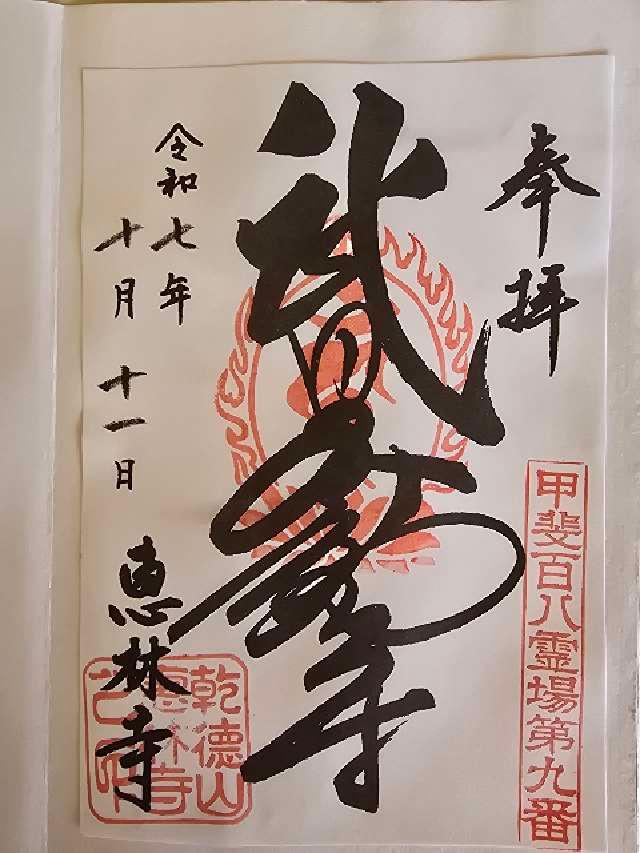 奉拝
甲斐百八霊場第九番
武田不動尊
令和七年
十月十一日
恵林寺
乾徳山
恵林寺